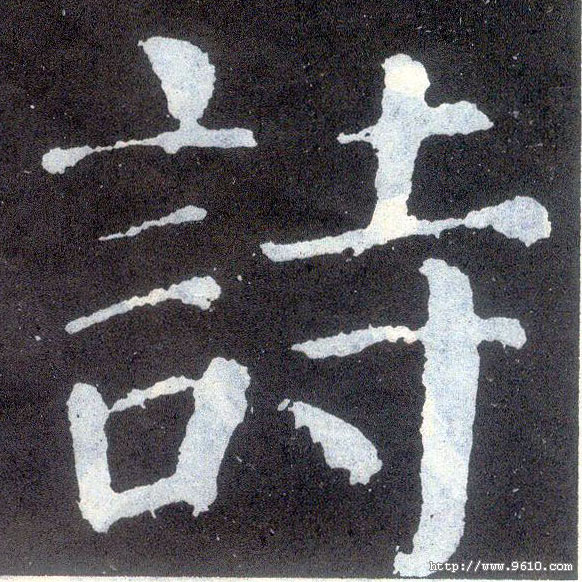 詩
http://www.9610.com